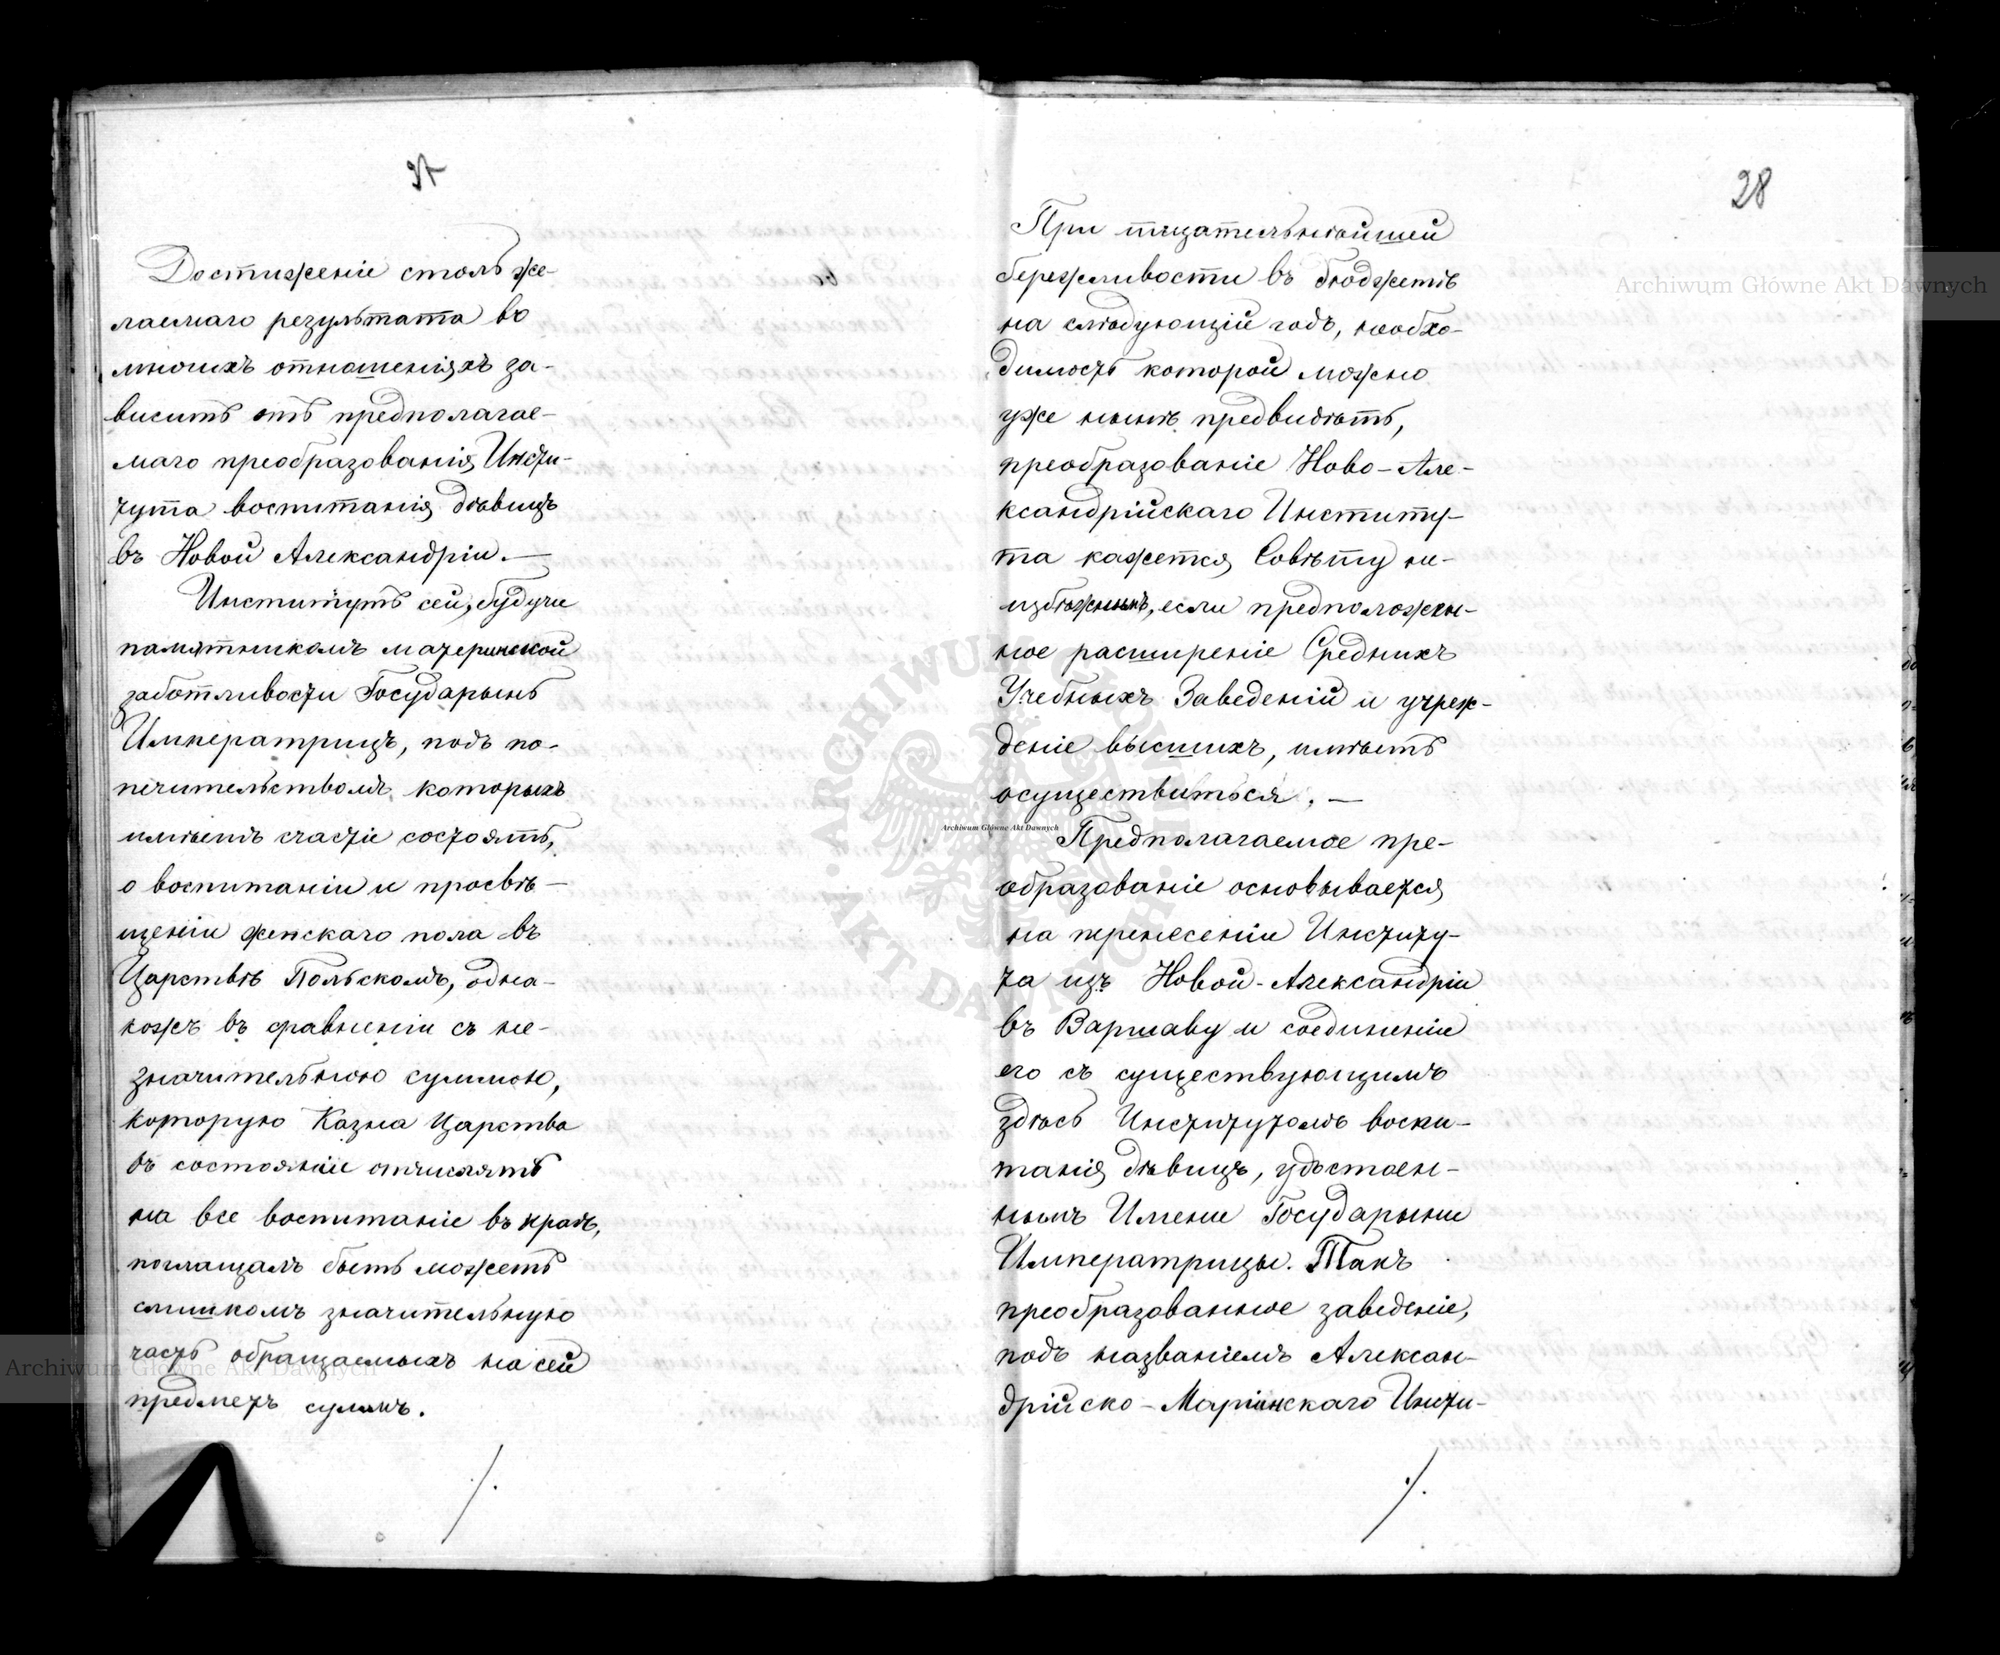 27
Достиженіе столь же-
лаемаго результата во
многихъ отношеніяхъ за-
виситъ отъ предполагае-
маго преобразованія Инсти-
тута воспитанія дѣвицъ
въ Новой Александріи. —
Институтъ сей, будучи
памятникомъ материнской
заботливости Государынь
Императрицъ, подъ по-
печительствомъ которыхъ
имѣетъ счастіе состоять,
о воспитаніи и просвѣ-
щеніи женскаго пола въ
Царствѣ Польскомъ, одна-
кожъ въ сравненіи съ не-
значительною суммою,
которую Казна Царства
въ состояніи отчислять
на все воспитаніе въ краѣ,
поглащалъ быть можетъ
слишкомъ значительную
часть обращаемыхъ на сей
предметъ суммъ.
./.
28
При тщательнѣйшей
бережливости въ бюджетѣ
на слѣдующій годъ, необхо-
димость которой можно
уже нынѣ предвидѣть,
преобразованіе Ново-Але-
ксандрійскаго Институ-
та кажется Совѣту не-
избѣжнымъ, если предположен-
ное расширеніе Среднихъ
Учебныхъ Заведеній и учреж-
деніе высшихъ, имѣетъ
осуществиться. —
Предполагаемое пре-
образованіе основывается
на перенесеніи Институ-
та изъ Новой-Александріи
въ Варшаву и соединеніи
его съ существующимъ
здѣсь Институтомъ воспи-
танія дѣвицъ, удостоен-
нымъ Имени Государыни
Императрицы. Такъ
преобразованное заведеніе,
подъ названіемъ Алексан-
дрійско-Маріинскаго Инсти-
./.
Archiwum Główne Akt Dawnych
Archiwum Główne Akt Dawnych
Archiwum Główne Akt Dawnych